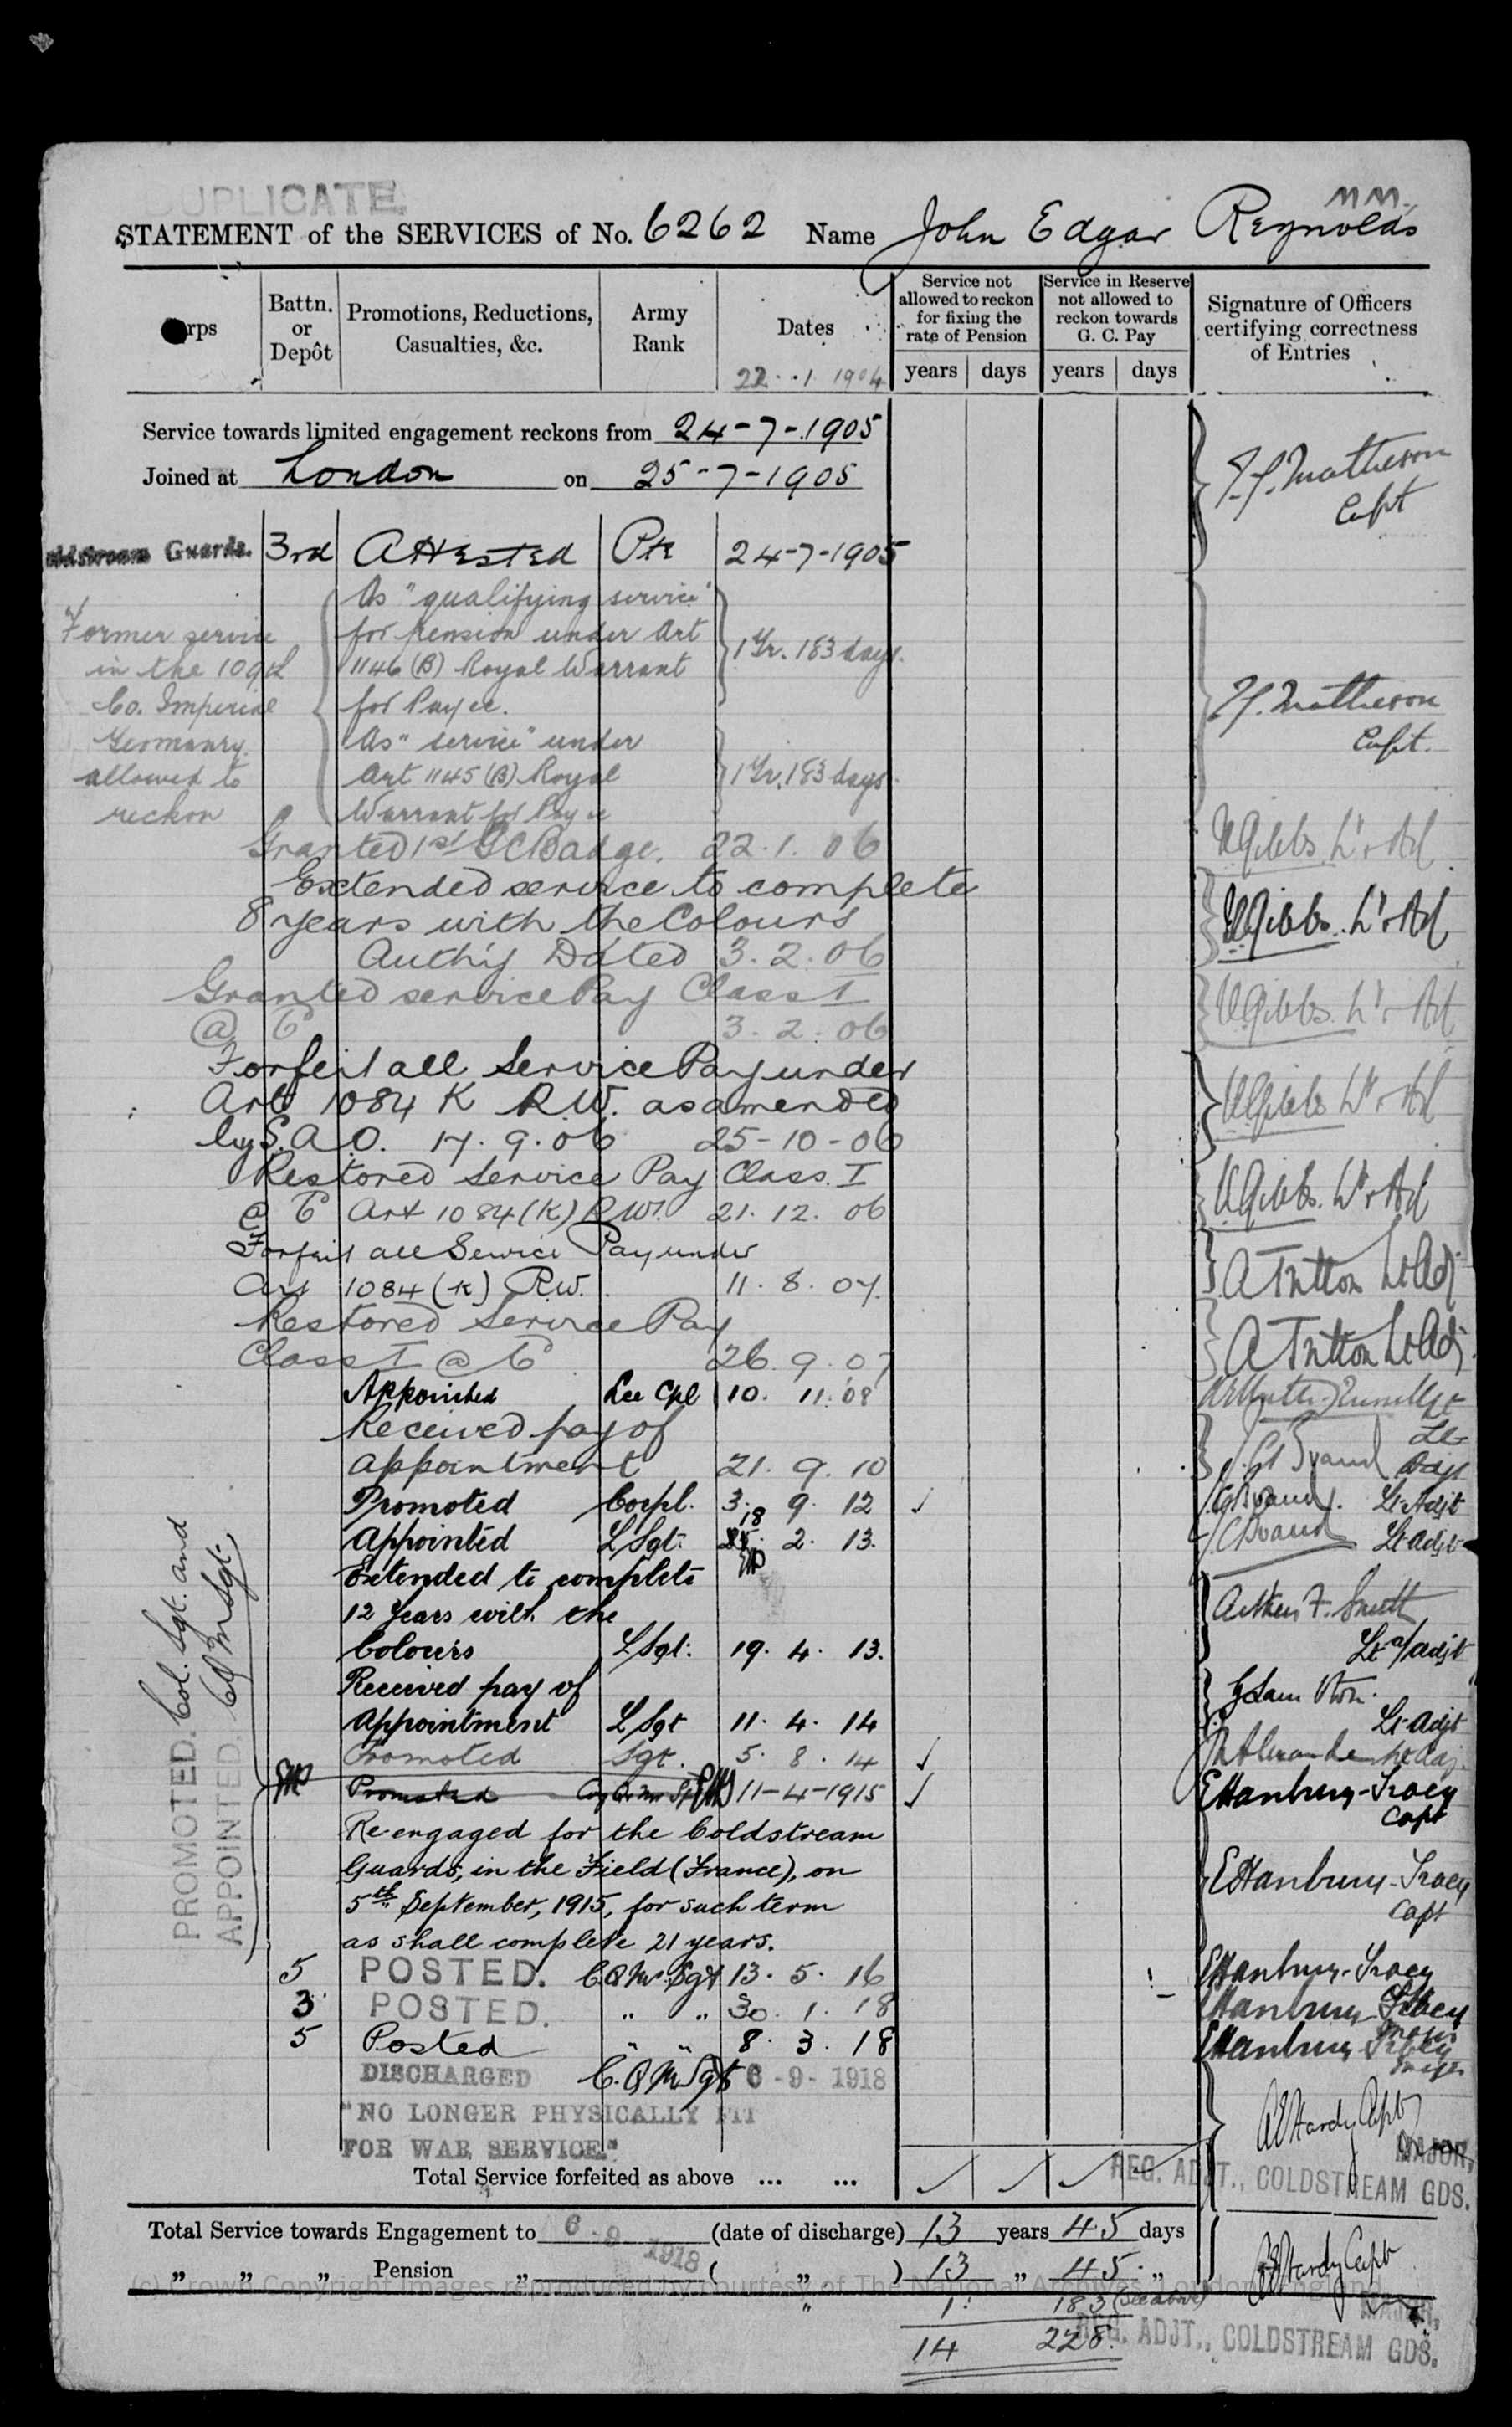 DUPLICATE.
MM.
STATEMENT of the SERVICES of No. 6262 Name John Edgar Reynolds
Corps
Battn. or Depôt
Promotions, Reductions, Casualties, &c.
Army Rank
Dates
22 . 1 1904
Service not allowed to reckon for fixing the rate of Pension
years days
Service in Reserve not allowed to reckon towards G. C. Pay
years days
Signature of Officers certifying correctness of Entries
Service towards limited engagement reckons from 24-7-1905
Joined at London on 25-7-1905
Matheson Capt
Coldstream Guards. 3rd Attested Pte 24-7-1905
Former service
in the 109th
Co. Imperial
Yeomanry
allowed to
reckon
As "qualifying service"
for pension under Art
1146 (B) Royal Warrant
for Pay &c.
1 Yr. 183 days.
As "service" under
Art 1145 (B) Royal
Warrant for Pay &c
1 Yr. 183 days.
Matheson Capt.
Granted 1st GC Badge. 22.1.06 Gibbs. Lt & Adj
Extended service to complete
8 years with the Colours
Auth'y Dated 3.2.06 Gibbs. Lt & Adj
Granted service Pay Class I
@ 6d 3.2.06 Gibbs. Lt & Adj
Forfeit all Service Pay under
Art 1084 K R.W. as amended
by S.A.O. 17.9.06 25-10-06 Gibbs Lt & Adj
Restored Service Pay Class. I
@ 6d Art 1084 (K) R.W. 21.12.06 Gibbs. Lt & Adj
Forfeit all Service Pay under
Art 1084 (K) R.W. 11.8.07. A Tritton Lt & Adj
Restored Service Pay
Class I @ 6d 26.9.07 A Tritton Lt & Adj
Appointed Lce Cpl 10. 11. 08
Received pay of
Appointment 21. 9. 10 Lt Adjt
Promoted Corpl. 3. 9. 12 ✓ Lt Adjt
Appointed L Sgt. 18 2. 13. Lt Adjt
Extended to complete
12 Years with the
Colours L Sgt: 19. 4. 13. F. Smith Lt a/Adjt
Received pay of
Appointment L Sgt 11. 4. 14 Lt-Adjt
Promoted Sgt. 5. 8. 14 ✓
PROMOTED. Col. Sgt. and
APPOINTED. CQMSgt.
Promoted Coy Qr Mr Sgt 11-4-1915 ✓ E Hanbury-Tracy Capt
Re-engaged for the Coldstream
Guards, in the Field (France), on
5th September, 1915, for such term
as shall complete 21 years.
E Hanbury-Tracy Capt
5 POSTED. C.Q.Mr.Sgt 13. 5. 16 E Hanbury-Tracy
3 POSTED. " " 30. 1. 18 E Hanbury-Tracy Major
5 Posted " " 8. 3. 18 E Hanbury-Tracy Major
DISCHARGED C.Q.M.Sgt 6-9-1918
"NO LONGER PHYSICALLY FIT
FOR WAR SERVICE"
Hardy Capt
MAJOR,
REG. ADJT., COLDSTREAM GDS.
Total Service forfeited as above ... ...
Total Service towards Engagement to 6-9-1918 (date of discharge) 13 years 45 days
" " " Pension " ( " ) 13 " 45. "
Hardy Capt
(c) Crown Copyright Images reproduced by courtesy of The National Archives, London, England.
" 1. 183 (see above)
14 228.
MAJOR,
REG. ADJT., COLDSTREAM GDS.